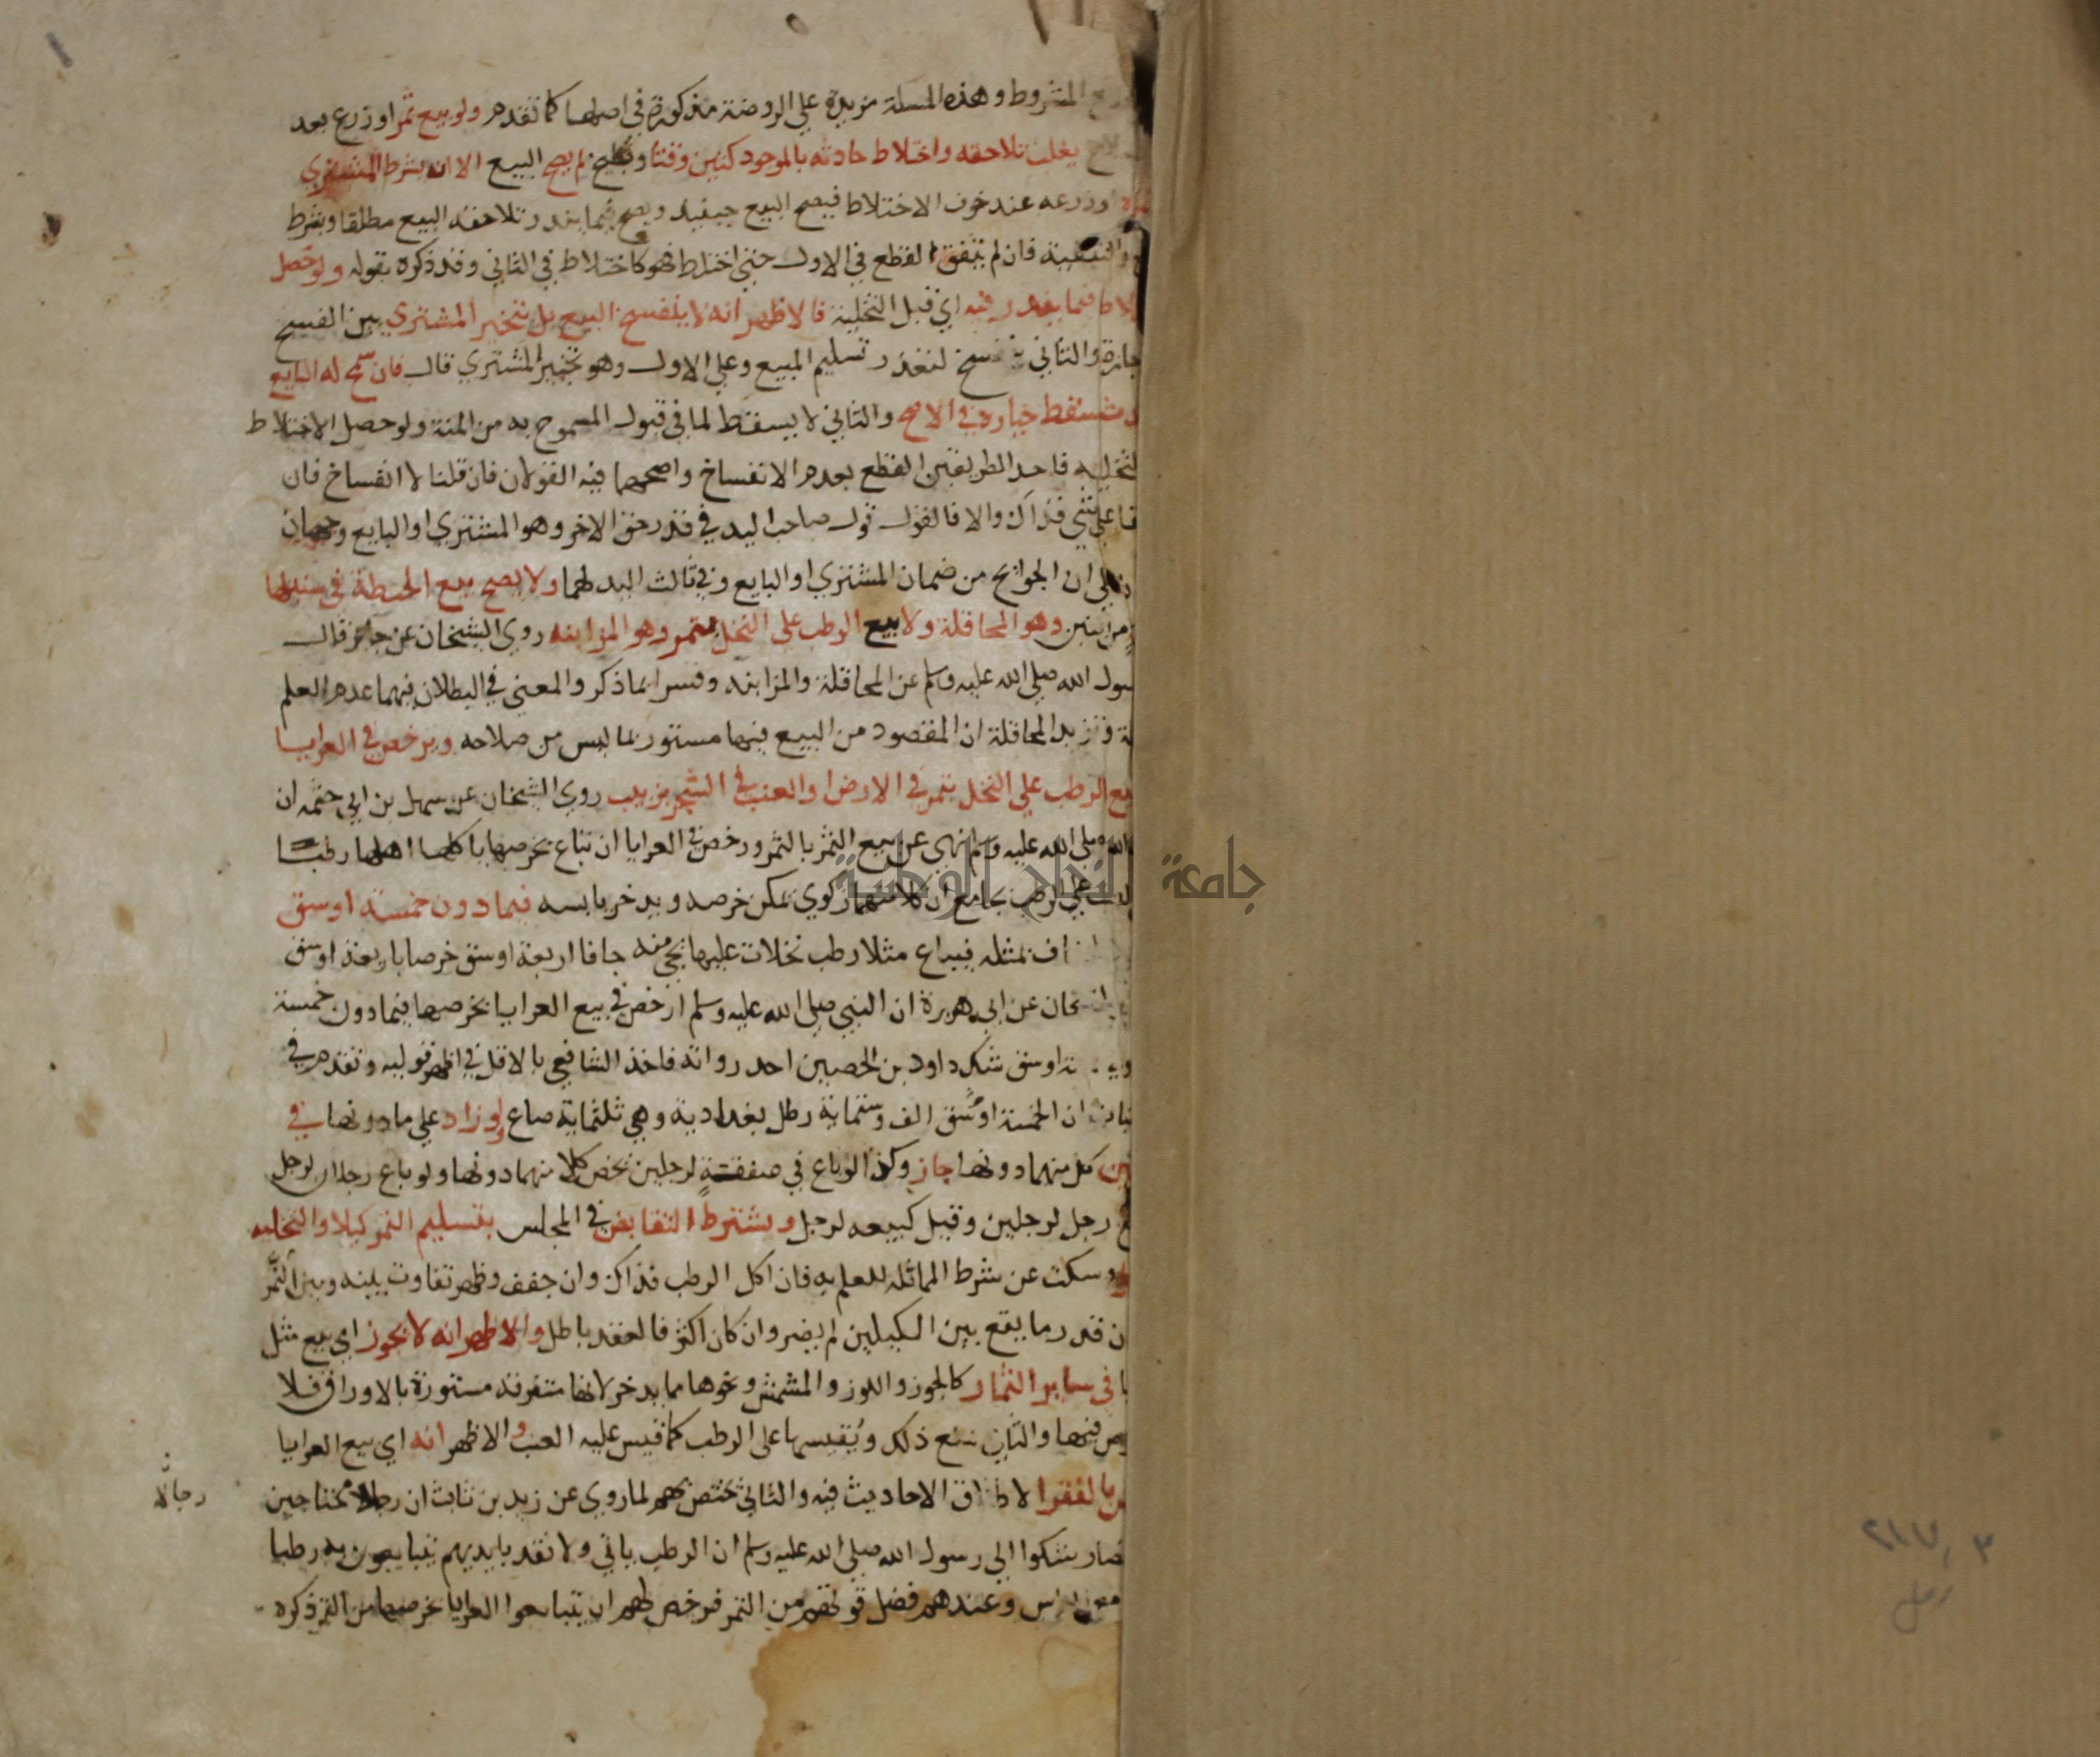 المشروط وهذه المسلة مزيدة علي الروضة مذكورة في اصلها كما تقدم ولو بيع ثمر او زرع بعد
يغلب تلاحقه واختلاط حادثه بالموجود كتين وقثا وبطيخ لم يصح البيع الا ان يشترط المشتري
او زرعه عند خوف الاختلاط فيصح البيع حينيذ ويصح فيما يندر تلاحقه البيع مطلقا وبشرط
والتبقية فان لم يتفق القطع في الاول حتي اختلط فهو كاختلاط في الثاني وقد ذكره بقوله ولو حصل
فيما يندر فيه اي قبل التخلية فالاظهر انه لا ينفسخ البيع بل يتخير المشتري بين الفسخ
والثاني ينفسخ لتعذر تسليم المبيع وعلي الاول وهو تخيير المشتري قال فان سمح له البايع
سقط خياره في الاصح والثاني لا يسقط لما في قبول المسموح به من المنة ولو حصل الاختلاط
فاحد الطريقين القطع بعدم الانفساخ واصحهما فيه القولان فان قلنا لا انفساخ فان
علي شي فذاك والا فالقول قول صاحب اليد في قدر حق الاخر وهو المشتري او البايع وجهان
ان الجوايح من ضمان المشتري او البايع وفي ثالث اليد لهما ولا يصح بيع الحنطة في سنبلها
من تبن وهو المحاقلة ولا بيع الرطب علي النخل بتمر وهو المزابنه روي الشيخان عن جابر قال
سول الله صلي الله عليه وسلم عن المحاقلة والمزابنه وفسرا بما ذكر والمعني في البطلان فيهما عدم العلم
وتزيد المحاقلة ان المقصود من البيع فيها مستور بما ليس من صلاحه ويرخص في العرايا
يع الرطب علي النخل بتمر في الارض او العنب في الشجر بزبيب روي الشيخان عن سهل بن ابي حثمه ان
الله صلي الله عليه وسلم نهي عن بيع الثمر بالتمر ورخص في العرايا ان تباع بخرصها ياكلها اهلها رطبا
علي الرطب بجامع ان كلا منهما زكوي يمكن خرصه ويدخر يابسه فيما دون خمسة اوسق
بمثله فيباع مثلا رطب نخلات عليها يجي منه جافا اربعة اوسق خرصا باربعة اوسق
عن ابي هريرة ان النبي صلي الله عليه وسلم ارخص في بيع العرايا بخرصها فيما دون خمسة
اوسق شك داود بن الحصين احد رواته فاخذ الشافعي بالاقل في اظهر قوليه وتقدم في
ان الخمسة اوسق الف وستماية رطل بغدادية وهي ثلثماية صاع ولو زاد علي ما دونها في
كل منهما دونها جاز وكذا لو باع في صفقة لرجلين يخص كلا منهما دونها ولو باع رجلان لرجل
رجل لرجلين وقيل كبيعه لرجل ويشترط التقابض في المجلس بتسليم التمر كيلا والتخليه
وسكت عن شرط المماثله للعلم به فان اكل الرطب فذاك وان جفف وظهر تفاوت بينه وبين التمر
ن قدر ما يقع بين الكيلين لم يضر وان كان اكثر فالعقد باطل والاظهر انه لا يجوز اي بيع مثل
في ساير الثمار كالجوز واللوز والمشمش ونحوها مما يدخر لانها متفرقه مستورة بالاوراق فلا
فيها والثاني نمنع ذلك ونقيسها علي الرطب كما قيس عليه العنب والاظهر انه اي بيع العرايا
بالفقرا لاطلاق الاحاديث فيه والثاني يختص بهم لما روي عن زيد بن ثابت ان رجالا محتاجين
رجالا
شكوا الي رسول الله صلي الله عليه وسلم ان الرطب ياتي ولا نقد بايديهم يتبايعون به رطبا
وعندهم فضل قوتهم من التمر فرخص لهم ان يتبايعوا العرايا بخرصها من التمر ذكره
جامعة النجاح الوطنية